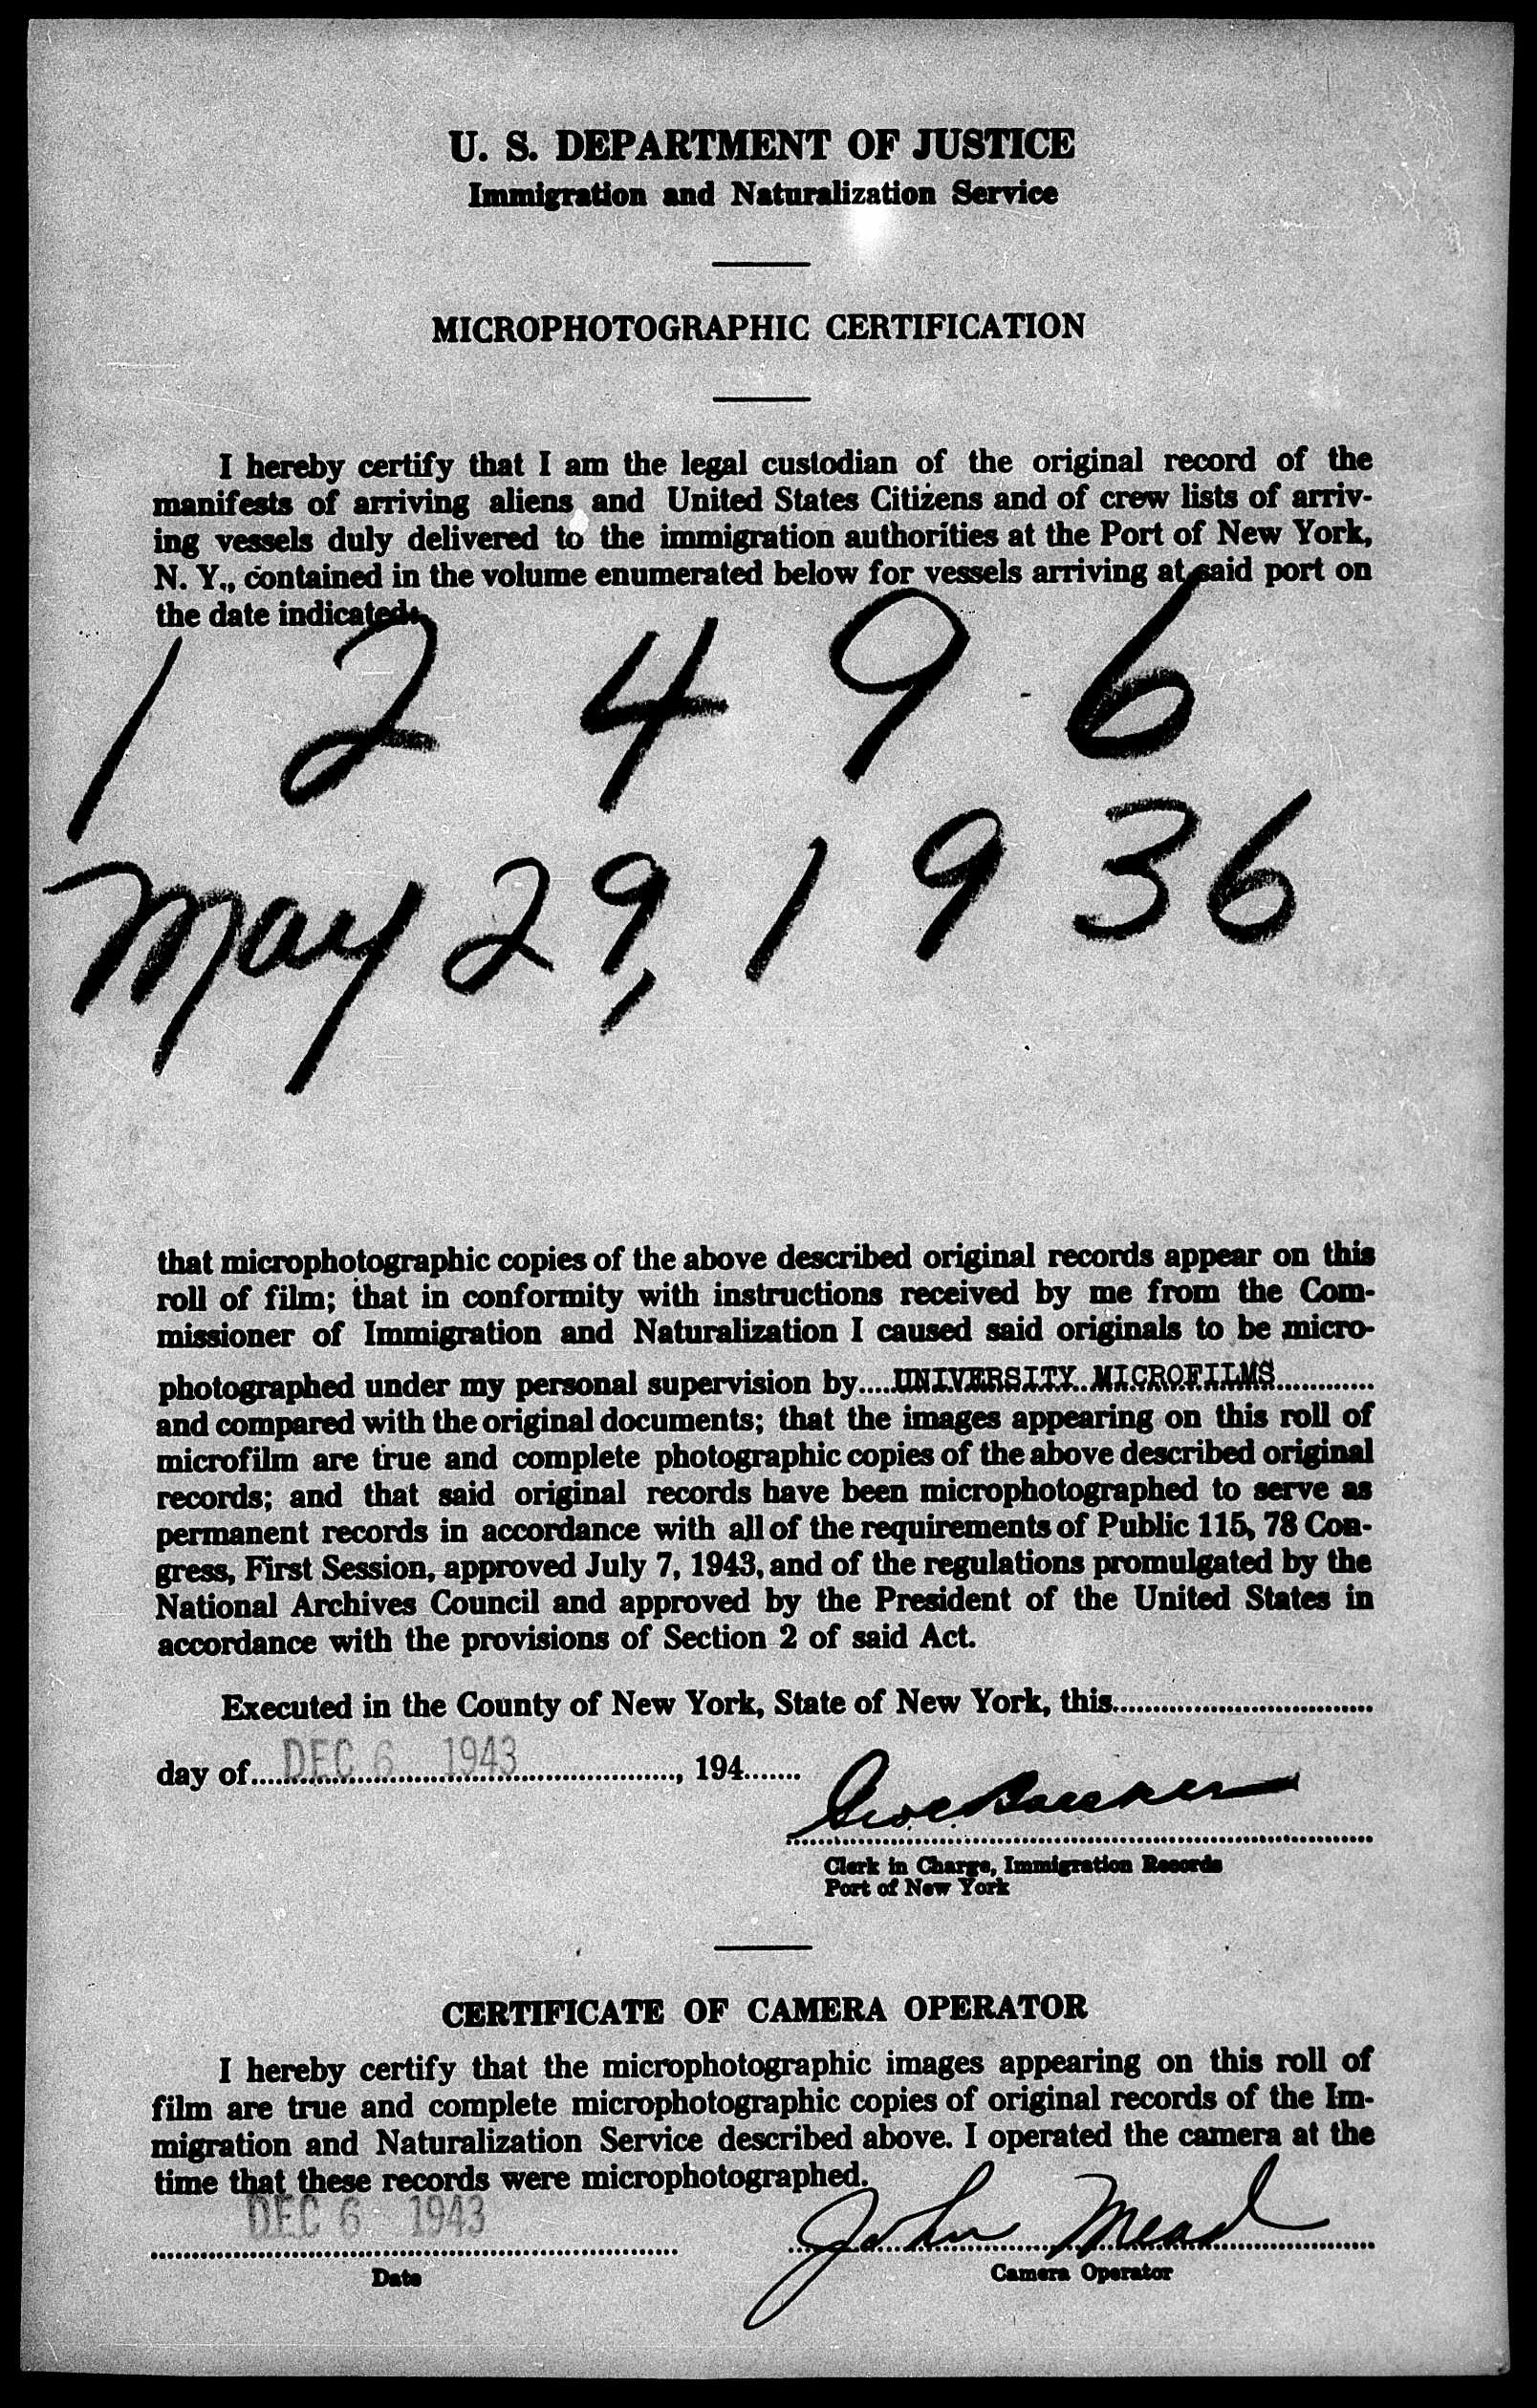 U. S. DEPARTMENT OF JUSTICE
Immigration and Naturalization Service
MICROPHOTOGRAPHIC CERTIFICATION
I hereby certify that I am the legal custodian of the original record of the
manifests of arriving aliens and United States Citizens and of crew lists of arriv-
ing vessels duly delivered to the immigration authorities at the Port of New York,
N. Y., contained in the volume enumerated below for vessels arriving at said port on
the date indicated:
1 2 4 9 6
May 29, 1936
that microphotographic copies of the above described original records appear on this
roll of film; that in conformity with instructions received by me from the Com-
missioner of Immigration and Naturalization I caused said originals to be micro-
photographed under my personal supervision by.....UNIVERSITY MICROFILMS.............
and compared with the original documents; that the images appearing on this roll of
microfilm are true and complete photographic copies of the above described original
records; and that said original records have been microphotographed to serve as
permanent records in accordance with all of the requirements of Public 115, 78 Con-
gress, First Session, approved July 7, 1943, and of the regulations promulgated by the
National Archives Council and approved by the President of the United States in
accordance with the provisions of Section 2 of said Act.
Executed in the County of New York, State of New York, this................................
day of.....DEC 6 1943...................., 194.......
Clerk in Charge, Immigration Records
Port of New York
CERTIFICATE OF CAMERA OPERATOR
I hereby certify that the microphotographic images appearing on this roll of
film are true and complete microphotographic copies of original records of the Im-
migration and Naturalization Service described above. I operated the camera at the
time that these records were microphotographed.
DEC 6 1943 John Mead
Date Camera Operator